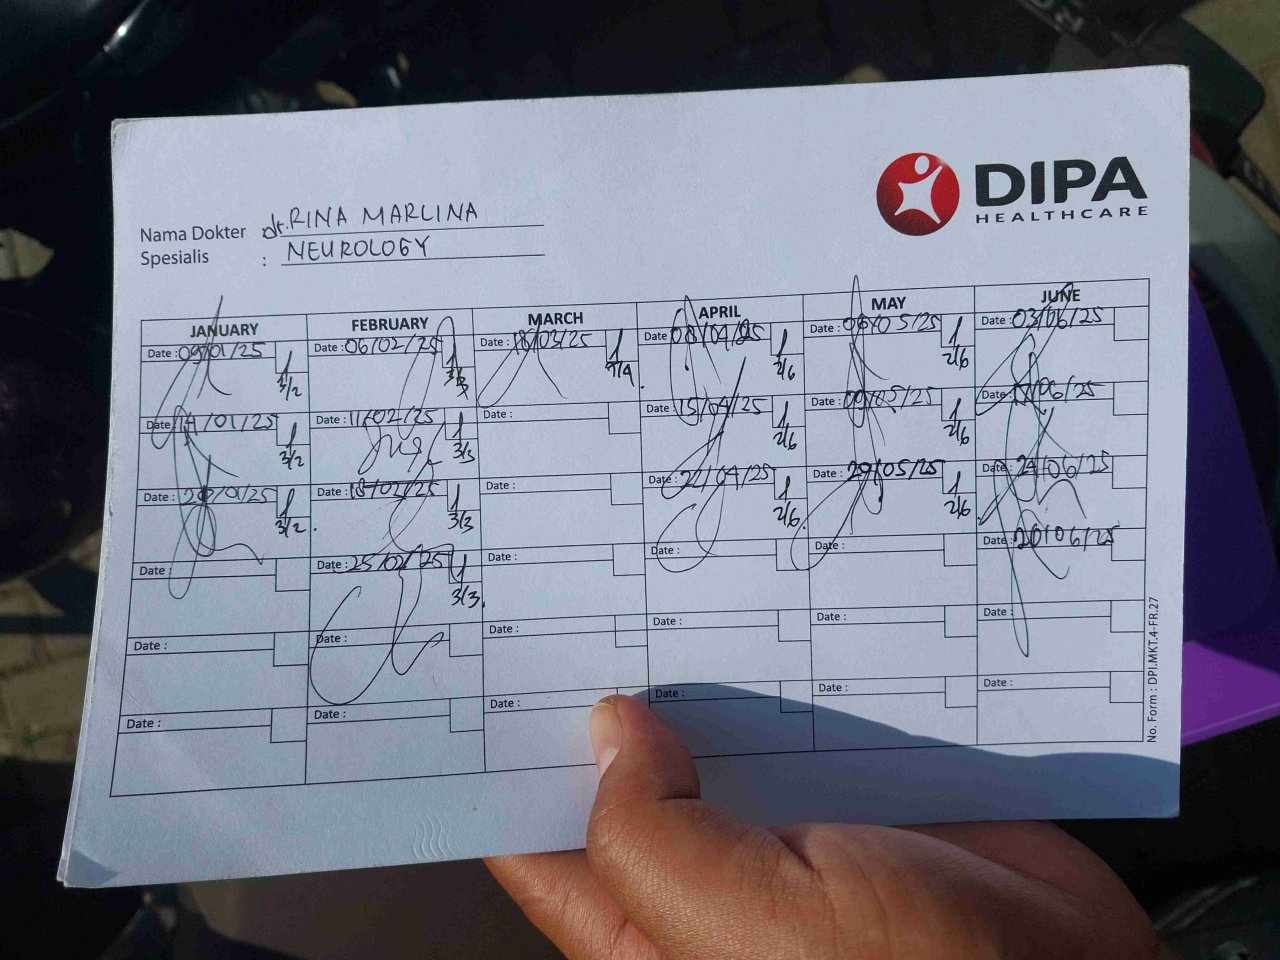 DIPA
HEALTHCARE
Nama Dokter dr. RINA MARLINA
Spesialis : NEUROLOGY
JANUARY FEBRUARY MARCH APRIL MAY JUNE
Date : 09/01/25 Date : 06/02/25 Date : 18/03/25 Date : 08/04/25 Date : 06/05/25 Date : 03/06/25
3/2 3/3 2/6 2/6
Date : 14/01/25 Date : 11/02/25 Date : Date : 15/04/25 Date : 09/05/25 Date : /06/25
3/2 3/3 2/6 2/6
Date : /01/25 Date : 18/02/25 Date : Date : 22/04/25 Date : /05/25 Date : 24/06/25
3/2 3/3 2/6 2/6
Date : Date : 25/02/25 Date : Date : Date : Date : /06/25
3/3
Date : Date : Date : Date : Date : Date :
Date : Date : Date : Date : Date : Date :
No. Form : DPI.MKT.4-FR.27